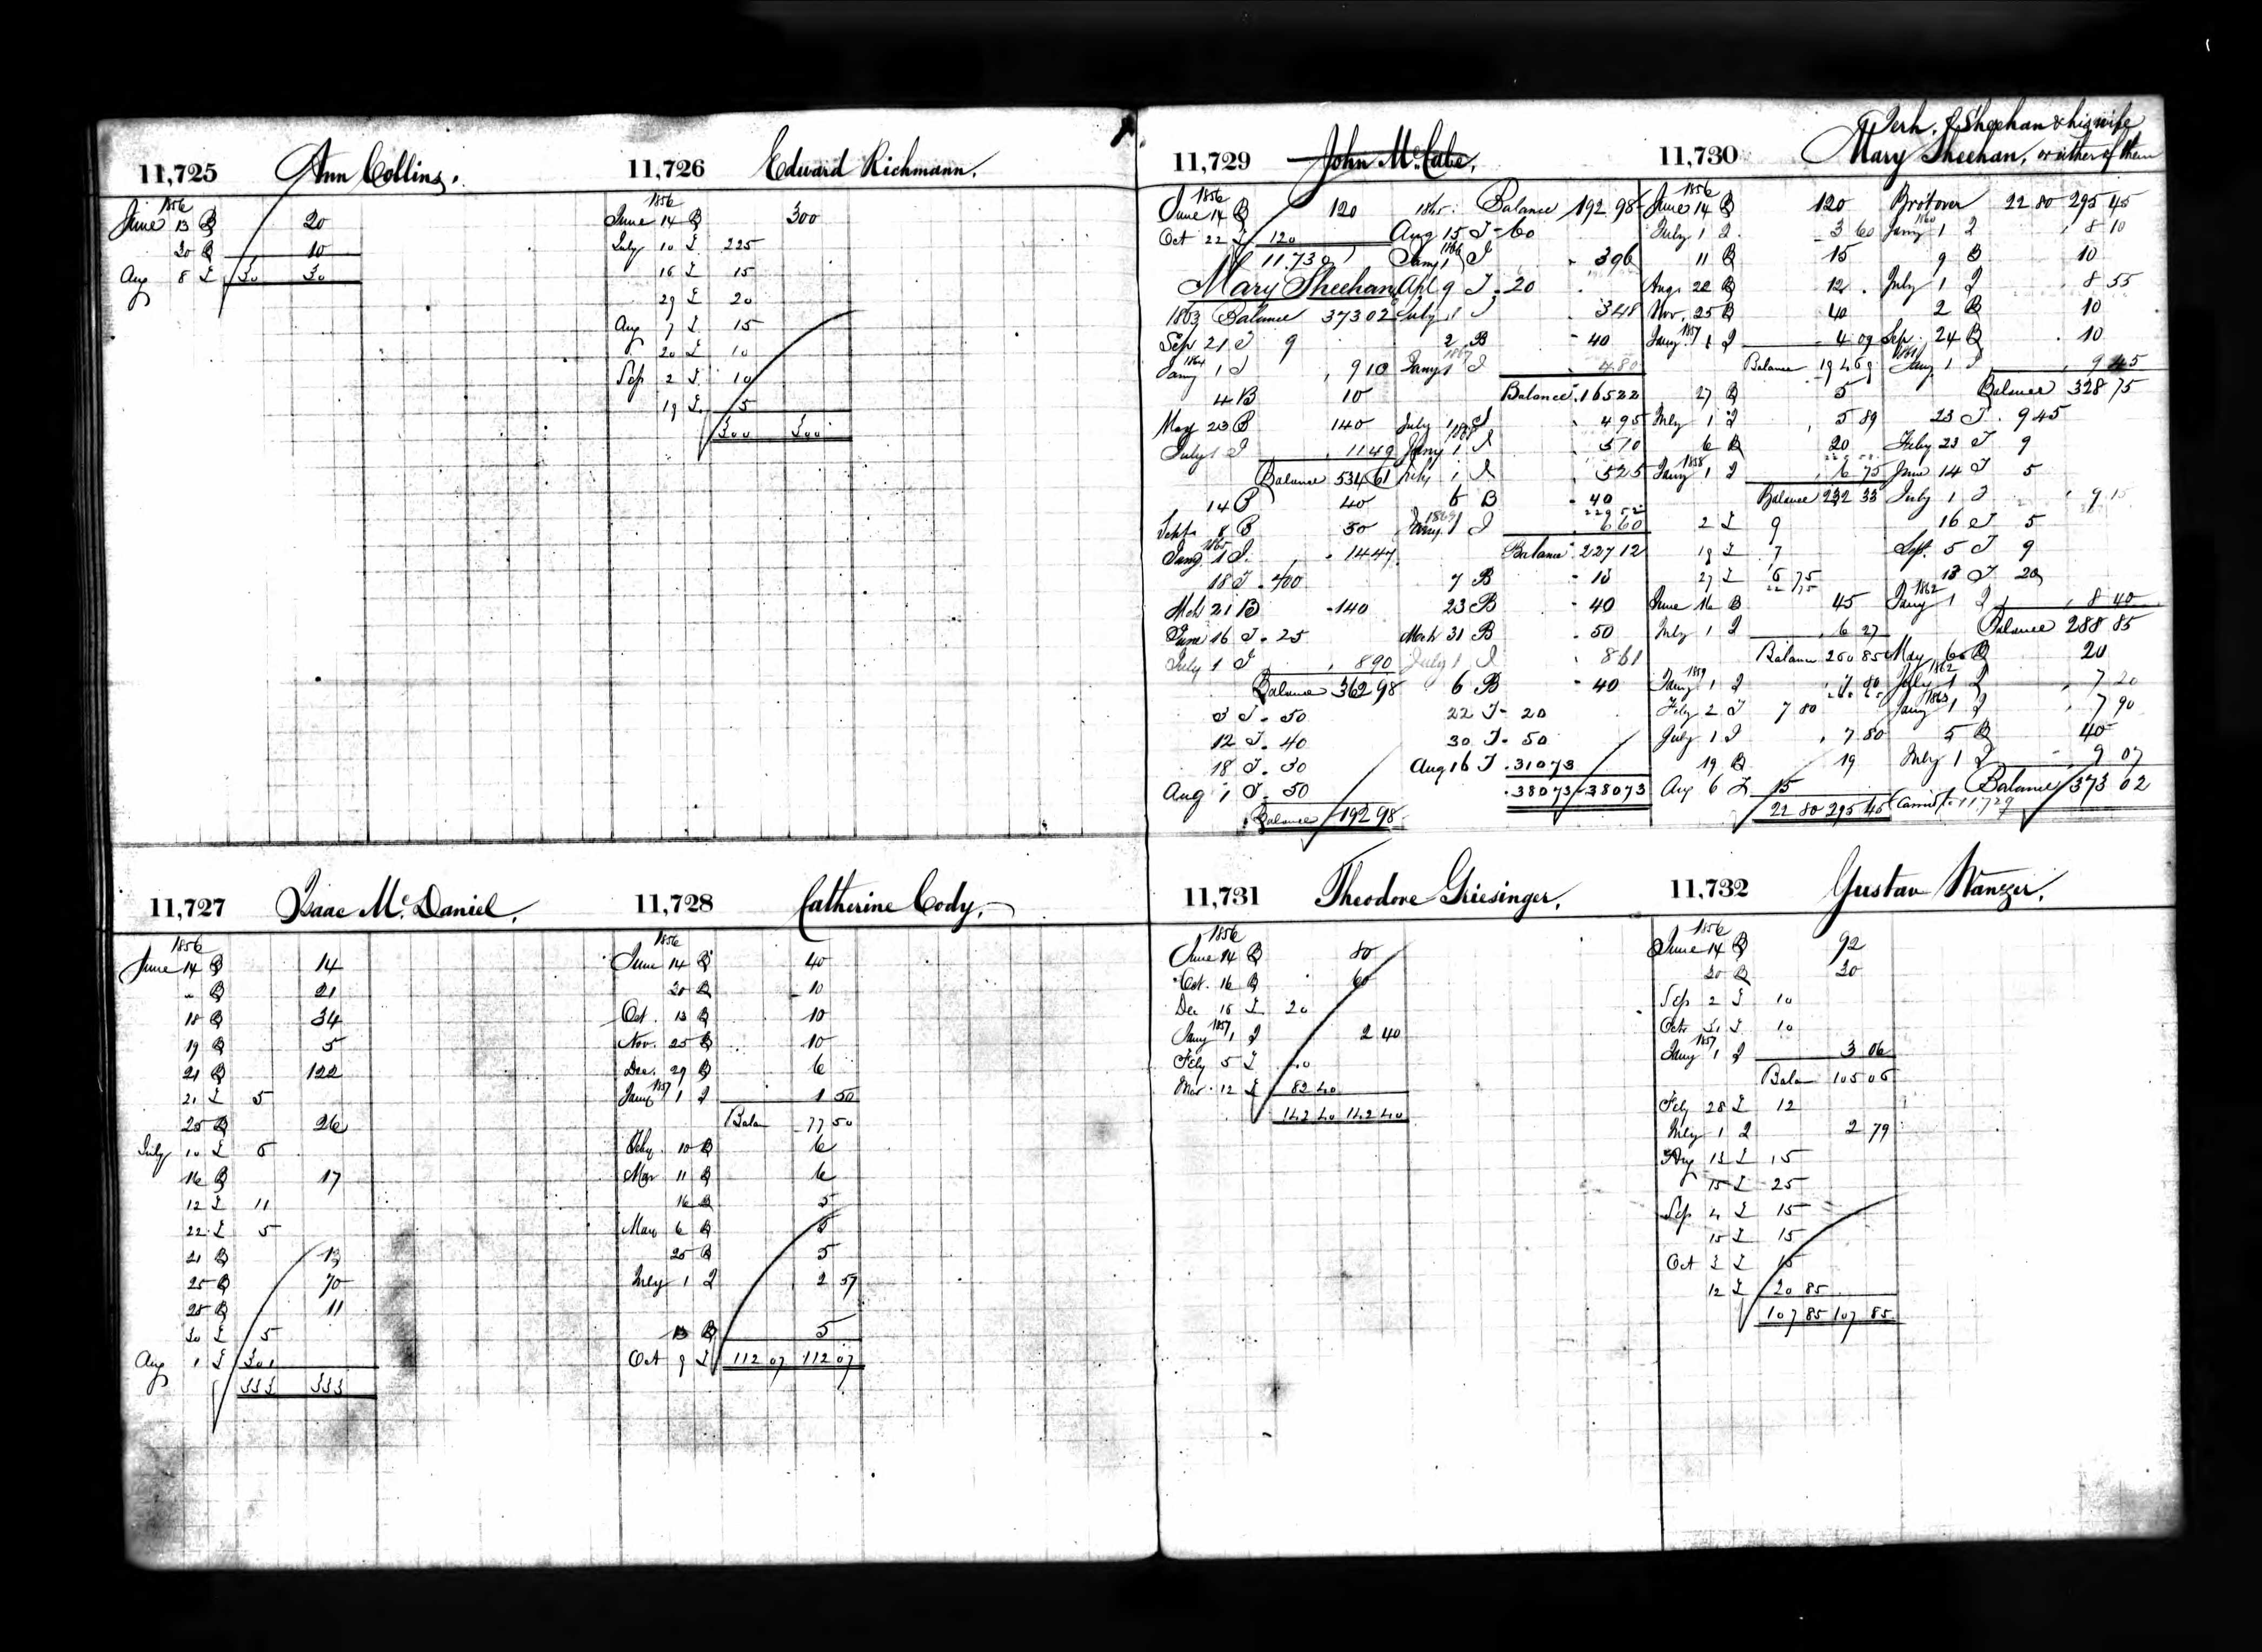 11,725 Ann Collins.
1856
June 13 B 20
20 B 10
Aug 8 I 30 30
11,726 Edward Richmann.
1856
June 14 B 300
July 10 I 225
16 I 15
29 I 20
Aug 7 I 15
20 I 10
Sep 2 I 10
19 I 5
300 300
11,727 Isaac Mc Daniel.
1856
June 14 B 14
" B 21
18 B 34
19 B 5
21 B 122
21 I 5
25 B 26
July 10 I 6
16 B 17
12 I 11
22 I 5
21 B 13
25 B 70
28 B 11
30 I 5
Aug 1 I 301
333 333
11,728 Catherine Cody.
1856
June 14 B 40
20 B 10
Oct. 13 B 10
Nov. 25 B 10
Dec. 29 B 6
1857
Jany 1 I 1 50
Balan 77 50
Feby. 10 B 6
Mar 11 B 6
16 B 5
May 6 B 5
25 B 5
July 1 I 2 57
13 B 5
Oct 9 I 112 07 112 07
11,729 John McCabe.
1856
June 14 B 120
Oct 22 I 120
11.730
Mary Sheehan
1863 Balance 373 02
Sep 21 I 9
1864
Jany 1 I 9 10
4 B 10
May 23 B 140
July 1 I 11 49
Balance 534 61
14 B 40
Sept 8 B 50
1865
Jany 1 I 14 47
18 I 400
Mch 21 B 140
June 16 I 25
July 1 I 8 90
Balance 362 98
3 I 50
12 I 40
18 I 30
Aug 1 I 50
Balance 192 98
1865 Balance 192 98
Aug 15 I 60
1866
Jany 1 I 3 96
Apl 9 I 20
July 1 I 3 48
2 B 40
1867
Jany 1 I 4 80
Balance 165 22
July 1 I 4 95
1868
Jany 1 I 5 70
July 1 I 5 25
6 B 40
1869
Jany 1 I 6 60
Balance 227 12
7 B 15
23 B 40
Mch 31 B 50
July 1 I 8 61
6 B 40
22 I 20
30 I 50
Aug 16 I 310 73
380 73 380 73
11,730 Jerh. Sheehan & his wife
Mary Sheehan, or either of them
1856
June 14 B 120
July 1 I 3 60
11 B 15
Aug. 22 B 12
Nov. 25 B 40
1857
Jany 1 I 4 09
Balance 194 69
27 B 5
July 1 I 5 89
6 B 20
1858
Jany 1 I 6 75
Balance 232 33
2 I 9
19 I 7
27 I 6 75
June 16 B 45
July 1 I 6 27
Balance 260 85
1859
Jany 1 I 7 80
Feby 2 I 7 80
July 1 I 7 80
19 B 19
Aug 6 I 15
22 80 295 45
Brot over 22 80 295 45
1860
Jany 1 I 8 10
9 B 10
July 1 I 8 55
2 B 10
Sep. 24 B 10
1861
Jany 1 I 9 45
Balance 328 75
23 I 9 45
Feby 23 I 9
June 14 I 5
July 1 I 9 15
16 I 5
Sept. 5 I 9
13 I 20
1862
Jany 1 I 8 40
Balance 288 85
May 6 B 20
1862
July 1 I 7 20
1863
Jany 1 I 7 90
5 B 40
July 1 I 9 07
Balance 373 02
Carried to 11,729
11,731 Theodore Griesinger.
1856
June 14 B 80
Oct. 16 B 60
Dec 15 I 20
1857
Jany 1 I 2 40
Feby 5 I 40
Mar. 12 I 82 40
142 40 142 40
11,732 Gustav Wanzer.
1856
June 14 B 92
20 B 30
Sep 2 I 10
Octr 31 I 10
1857
Jany 1 I 3 06
Balan 105 06
Feby 28 I 12
July 1 I 2 79
Aug 13 I 15
15 I 25
Sep 4 I 15
15 I 15
Oct 3 I
12 I 20 85
107 85 107 85